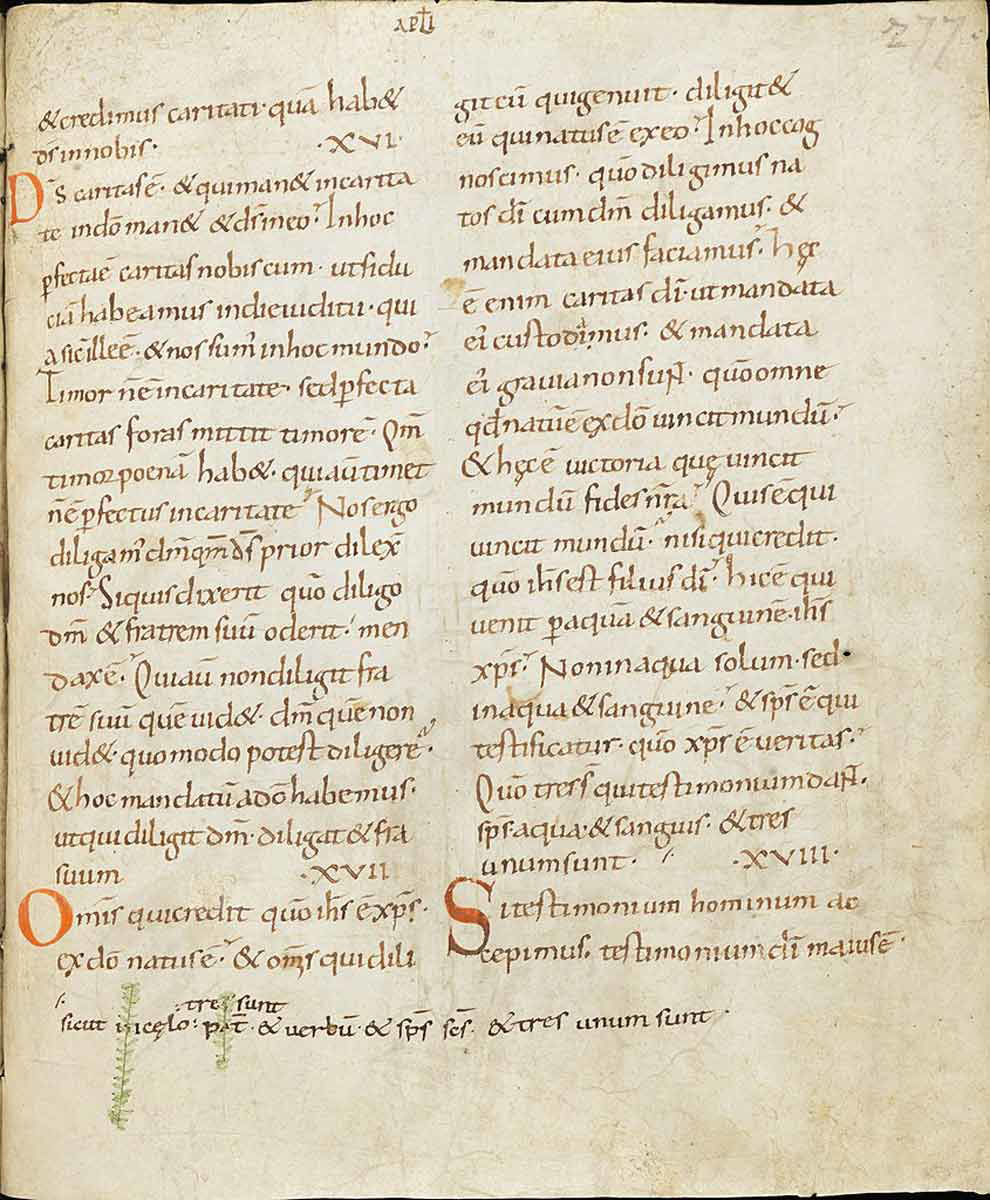 APL̄I
277
&credimus caritati· quā hab&
d̄s innobis· ·XVI·
D̄s caritasē· &quiman& incarita
te indō man& &d̄sineo· Inhoc
perfectaē caritas nobiscum· utfidu
ciā habeamus indieiudicii· qui
asicilleē· &nos sum' inhoc mundo·
Timor n̄ē incaritate· sedꝑfecta
caritas foras mittit timorē· Qm̄
timor poenā hab&· quiaūtimet
n̄ē ꝑfectus incaritate Nosergo
diligam' dm̄ qm̄ d̄s prior dilex̄
nos· Siquis dixerit quō diligo
dm̄ &fratrem suū oderit· men
daxē· Quiaū nondiligit fra
trē suū quē uid&· dm̄ quē non
uid&· quomodo potest diligere·
&hoc mandatū adō habemus·
utqui diligit dm̄· diligat &fra
suum ·XVII
Om̄is quicredit quō ih̄s ē xp̄s·
exdō natus ē· &om̄s quidili
git eū quigenuit· diligit&
eū quinatusē exeo· Inhoccog
noscimus· quōdiligimus na
tos dī cumdm̄ diligamus· &
mandata eius faciamus· hęc
ē enim caritas dī· utmandata
ei' custodimus· & mandata
ei' grauianonsuNt· quōomne
qd̄ natūē exdō uincitmundū·
&hęcē uictoria quę uincit
mundū fides nr̄a Quisēqui
uincit mundū· nisiquicredit·
quō ih̄sest filius dī· hicē qui
uenit ꝑaquā &sanguinē· ih̄s
xp̄s· Noninaqua solum· sed
inaqua &sanguine· &sp̄s ē qui
testificatur· quō xp̄s ē ueritas·
Quō tres s̄ quitestimoniumdaNt·
sp̄s· aqua· &sanguis· &tres
unumsunt· ·XVIII·
Sitestimonium hominum ac
cepimus· testimonium dī maiusē·
tres sunt
sicut incęlo· pat̄ &uerbū· & sp̄s sc̄s· &tres unum sunt·